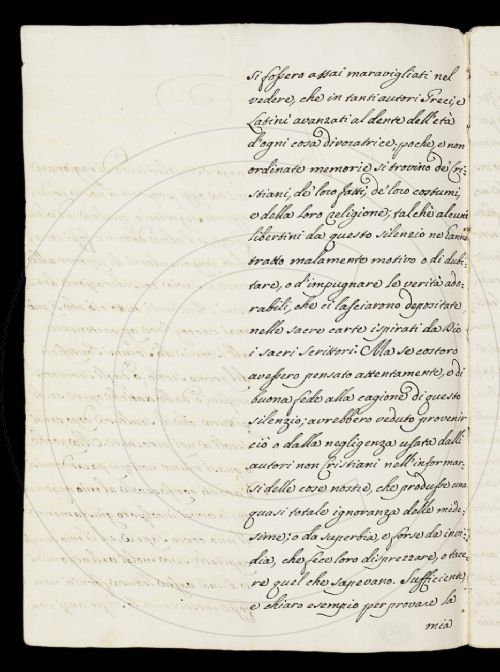 si fossero assai maravigliati nel
vedere, che in tanti autori Greci, e
Latini avanzati al dente dell'età
d'ogni cosa divoratrice, poche, e non
ordinate memorie si trovino de' Cri-
stiani, de' loro fatti, de' loro costumi,
e della loro religione; talchè alcuni
libertini da questo silenzio ne hanno
tratto malamente motivo o di dubi-
tare, o d'impugnare le verità ado-
rabili, che ci lasciarono depositate
nelle sacre carte ispirati da Dio
i sacri scrittori. Ma se costoro
avessero pensato attentamente, e di
buona fede alla cagione di questo
silenzio; avrebbero veduto provenir
ciò o dalla negligenza usata dall'
autori non Cristiani nell'informar-
si delle cose nostre, che produsse una
quasi totale ignoranza delle mede-
sime; o da superbia, e forse da invi-
dia, che fece loro disprezzare, o tace-
re quel che sapevano. Sufficiente,
e chiaro esempio per provare la
mia